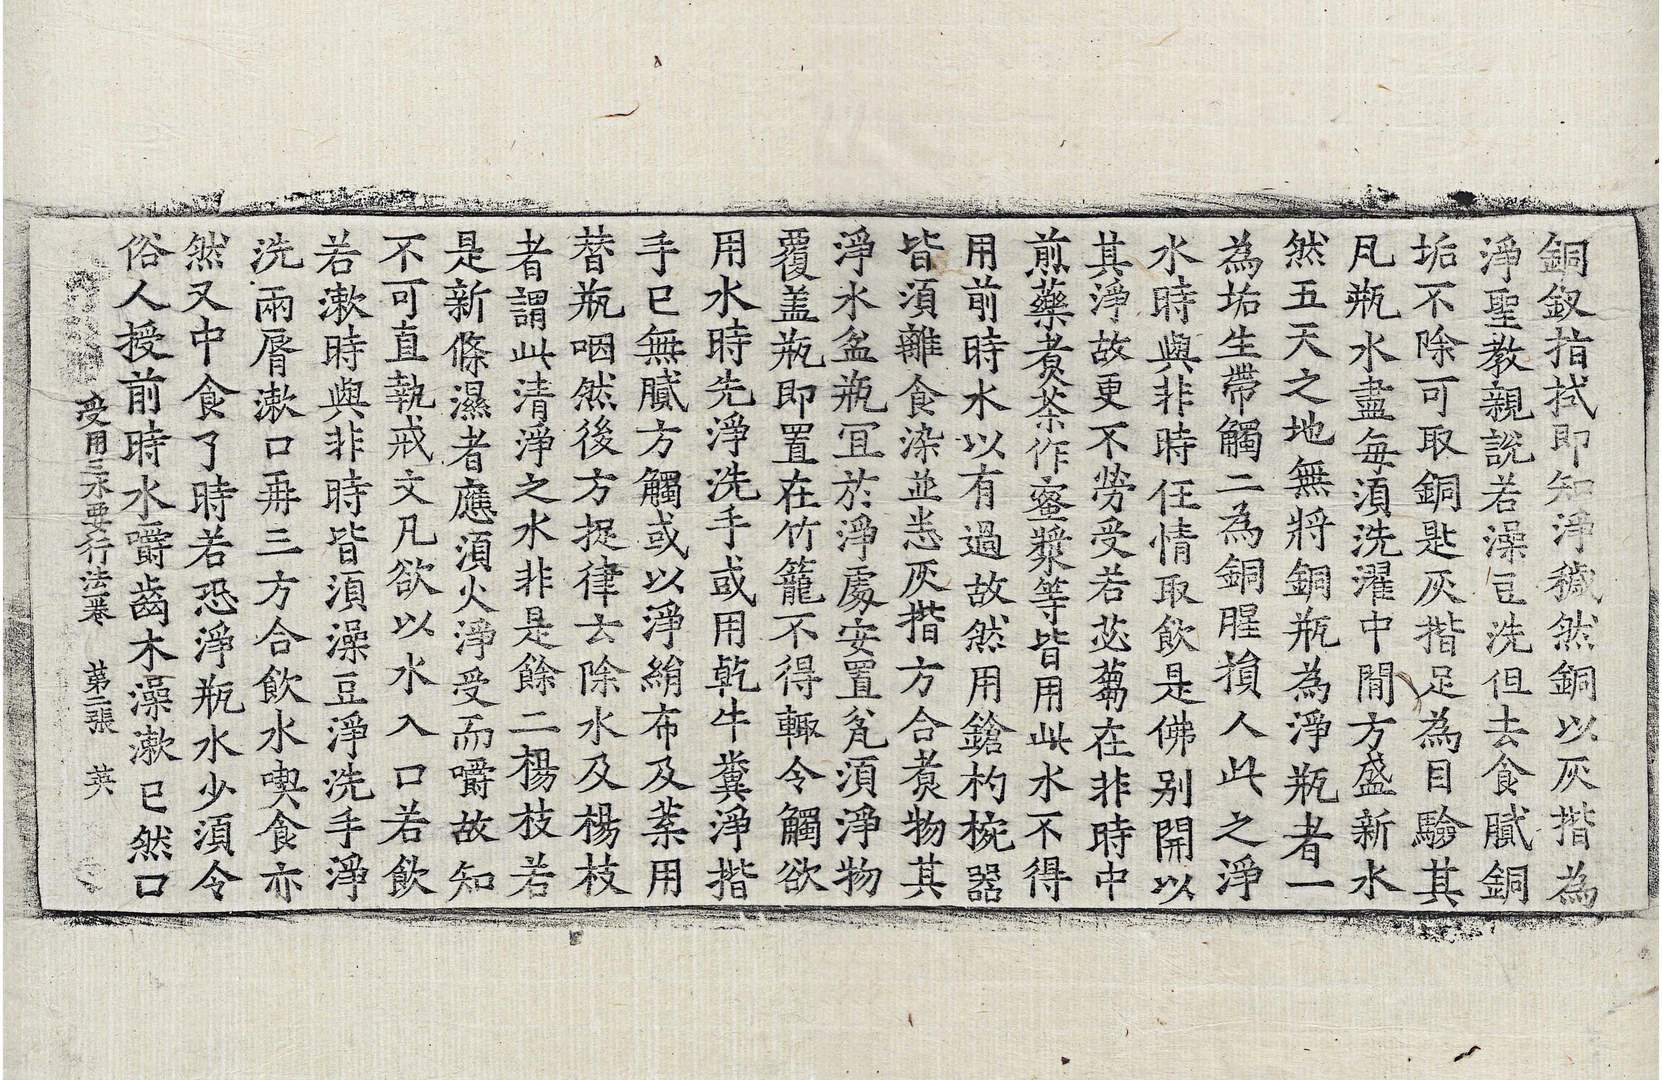 銅釵指拭即知淨穢然銅以灰揩為
淨聖教親說若澡豆洗但去食膩銅
垢不除可取銅匙灰揩足為目驗其
凡瓶水盡每湏洗濯中閒方盛新水
然五天之地無將銅瓶為淨瓶者一
為垢生帶觸二為銅腥損人此之淨
水時與非時任情取飲是佛別開以
其淨故更不勞受若苾蒭在非時中
煎藥煮茶作蜜漿等皆用此水不得
用前時水以有過故然用鎗杓椀器
皆湏離食染並悉灰揩方合煮物其
淨水盆瓶冝於淨處安置瓮湏淨物
覆盖瓶即置在竹籠不得輙令觸欲
用水時先淨洗手或用乾牛糞淨揩
手已無膩方觸或以淨絹布及葉用
替瓶咽然後方捉律云除水及楊枝
者謂此清淨之水非是餘二楊枝若
是新條濕者應湏火淨受而嚼故知
不可直執戒文凡欲以水入口若飲
若漱時與非時皆湏澡豆淨洗手淨
洗兩脣漱口再三方合飲水喫食亦
然又中食了時若恐淨瓶水少湏令
俗人授前時水嚼齒木澡漱已然口
受用三水要行法卷　第二張　英